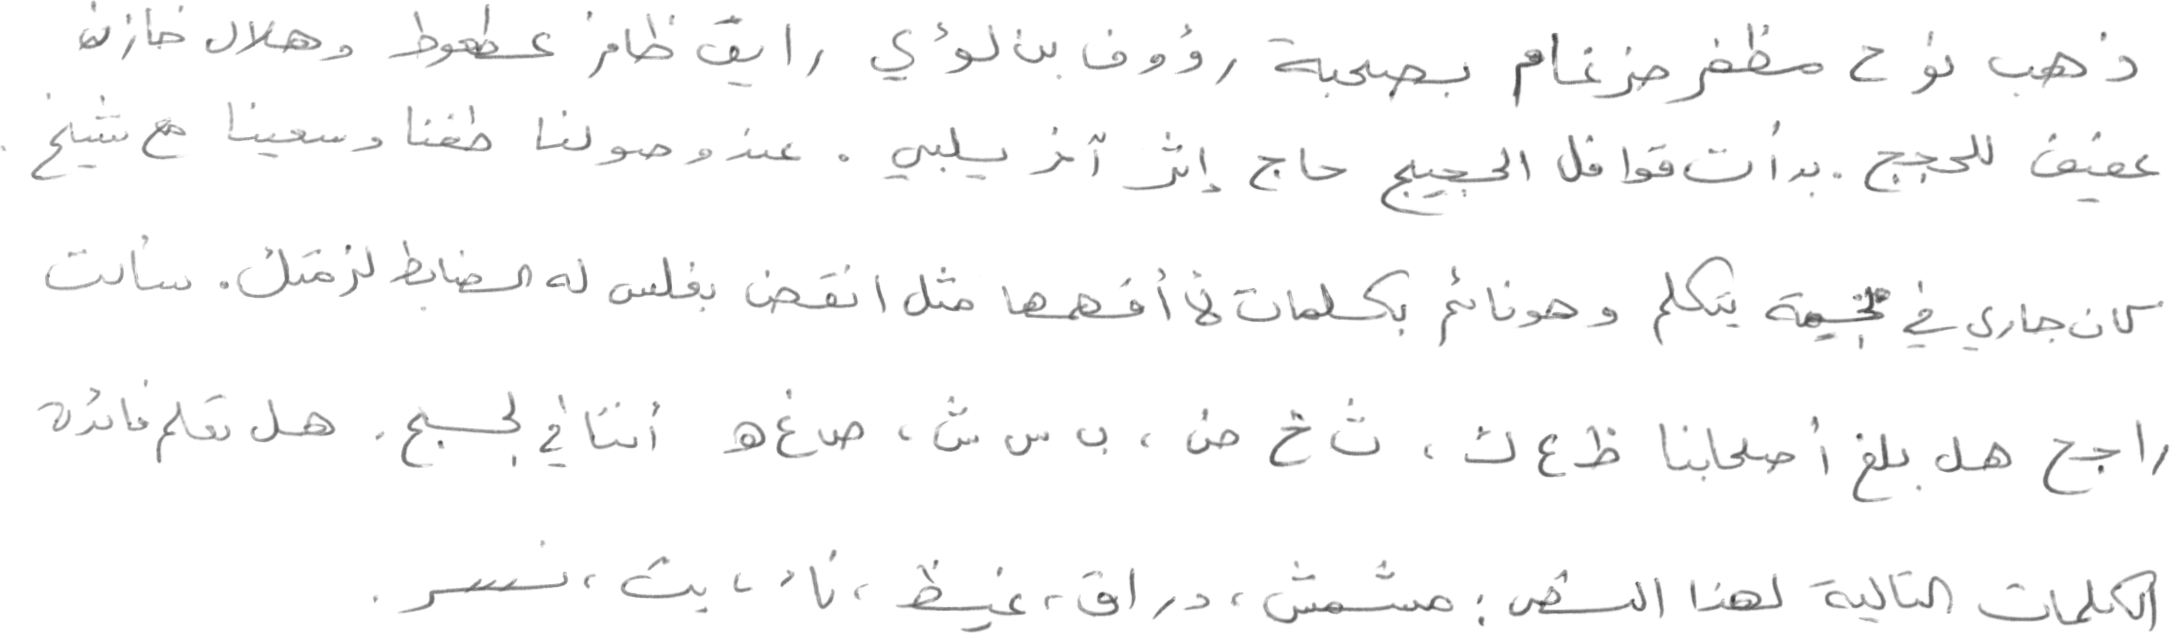 ذهب نوح مظفر ضرغام بصحبة رؤوف بن لؤي رايق ظافر عطعوط وهلال خازن
عفيف للحجج . بدأت قوافل الحجيج حاج إثر آخر يلبي . عند وصولنا طفنا وسعينا مع شيخ .
كان جاري في مخيمة يتكلم وهو نائم بكلمات لا أفهمها مثل انقض بفلس له الضابط لزمتك . سألت
راجح هل بلغ أصحابنا ظ ع ك ، ث خ ض ، ب س ش ، ص غ ه أننا في لجسج . هل تعلم فائدة
الكلمات التالية لهذا النص : مشمش ، دراق ، غيظ ، ناء ، يث ، نسر .